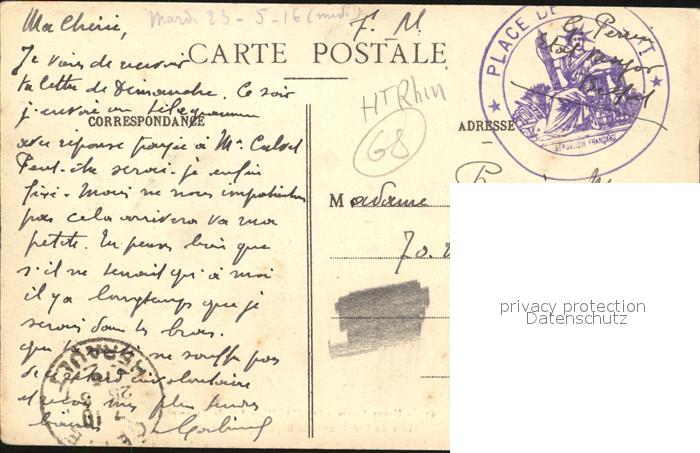 Mardi 23-5-16 (midi)
F. M.
Ma Chérie,
CARTE POSTALE
PLACE DE
RÉPUBLIQUE FRANÇAISE
Je viens de recevoir
ta lettre de Dimanche. Ce soir
j'envoie un télégramme
Ht Rhin
68
CORRESPONDANCE
ADRESSE
avec réponse payée à Mr
Peut-être serai-je enfin
fixé. Mais ne nous impatientons
pas cela arrivera va ma
petite. Tu penses bien que
s'il ne tenait qu'à moi
il y a longtemps que je
serais dans tes bras.
ne souffre pas
de ce retard involontaire
et reçois mes plus tendres
baisers
HERAULT
Madame
70
privacy protection
Datenschutz